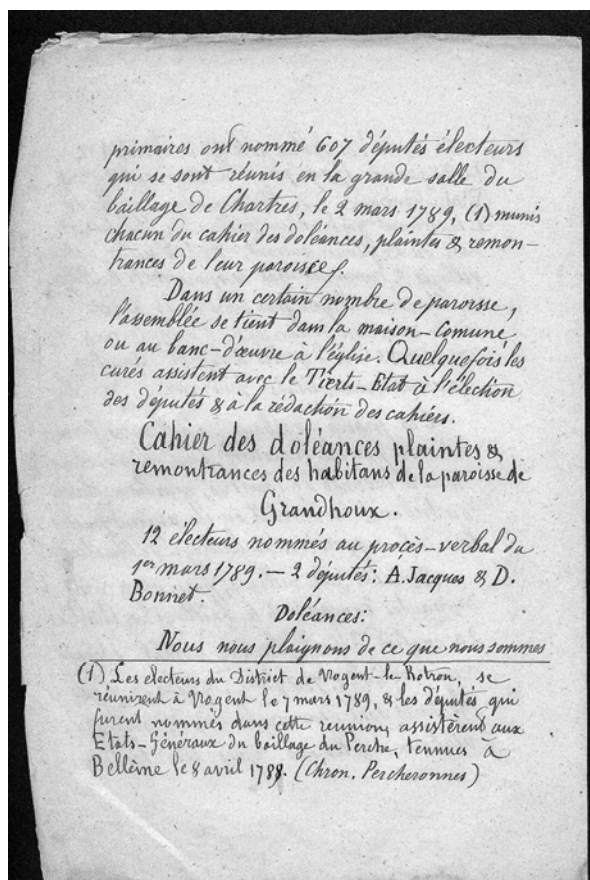 primaires ont nommé 607 députés électeurs
qui se sont réunis en la grande salle du
baillage de Chartres, le 2 mars 1789, (1) munis
chacun du cahier des doléances, plaintes & remon-
trances de leur paroisse.
Dans un certain nombre de paroisse,
l'assemblée se tient dans la maison-comune
ou au banc-d'œuvre à l'église. Quelquefois les
curés assistent avec le Tierts-Etat à l'élection
des députés & à la rédaction des cahiers.
Cahier des doléances plaintes &
remontrances des habitans de la paroisse de
Grandhoux.
12 electeurs nommés au procès-verbal du
1er mars 1789. — 2 députés: A. Jacques & D.
Bonnet.
Doléances:
Nous nous plaignons de ce que nous sommes
(1) Les électeurs du District de Nogent-le-Rotrou, se
réunirent à Nogent le 7 mars 1789, & les députés qui
furent nommés dans cette reunion, assistèrent aux
Etats-Généraux du baillage du Perche, tennues à
Bellème le 8 avril 1789. (Chron. Percheronnes)